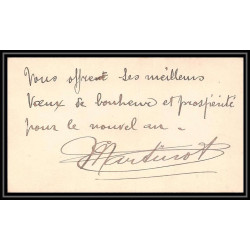 Vous offrent ses meilleurs
Vœux de bonheur et prospérité
pour le nouvel an –